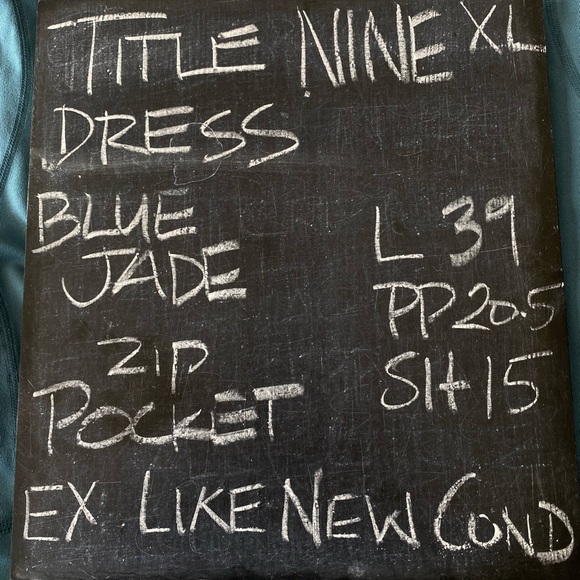 TITLE NINE XL
DRESS
BLUE
JADE
L 39
PP 20.5
SH 15
ZIP
POCKET
EX LIKE NEW COND